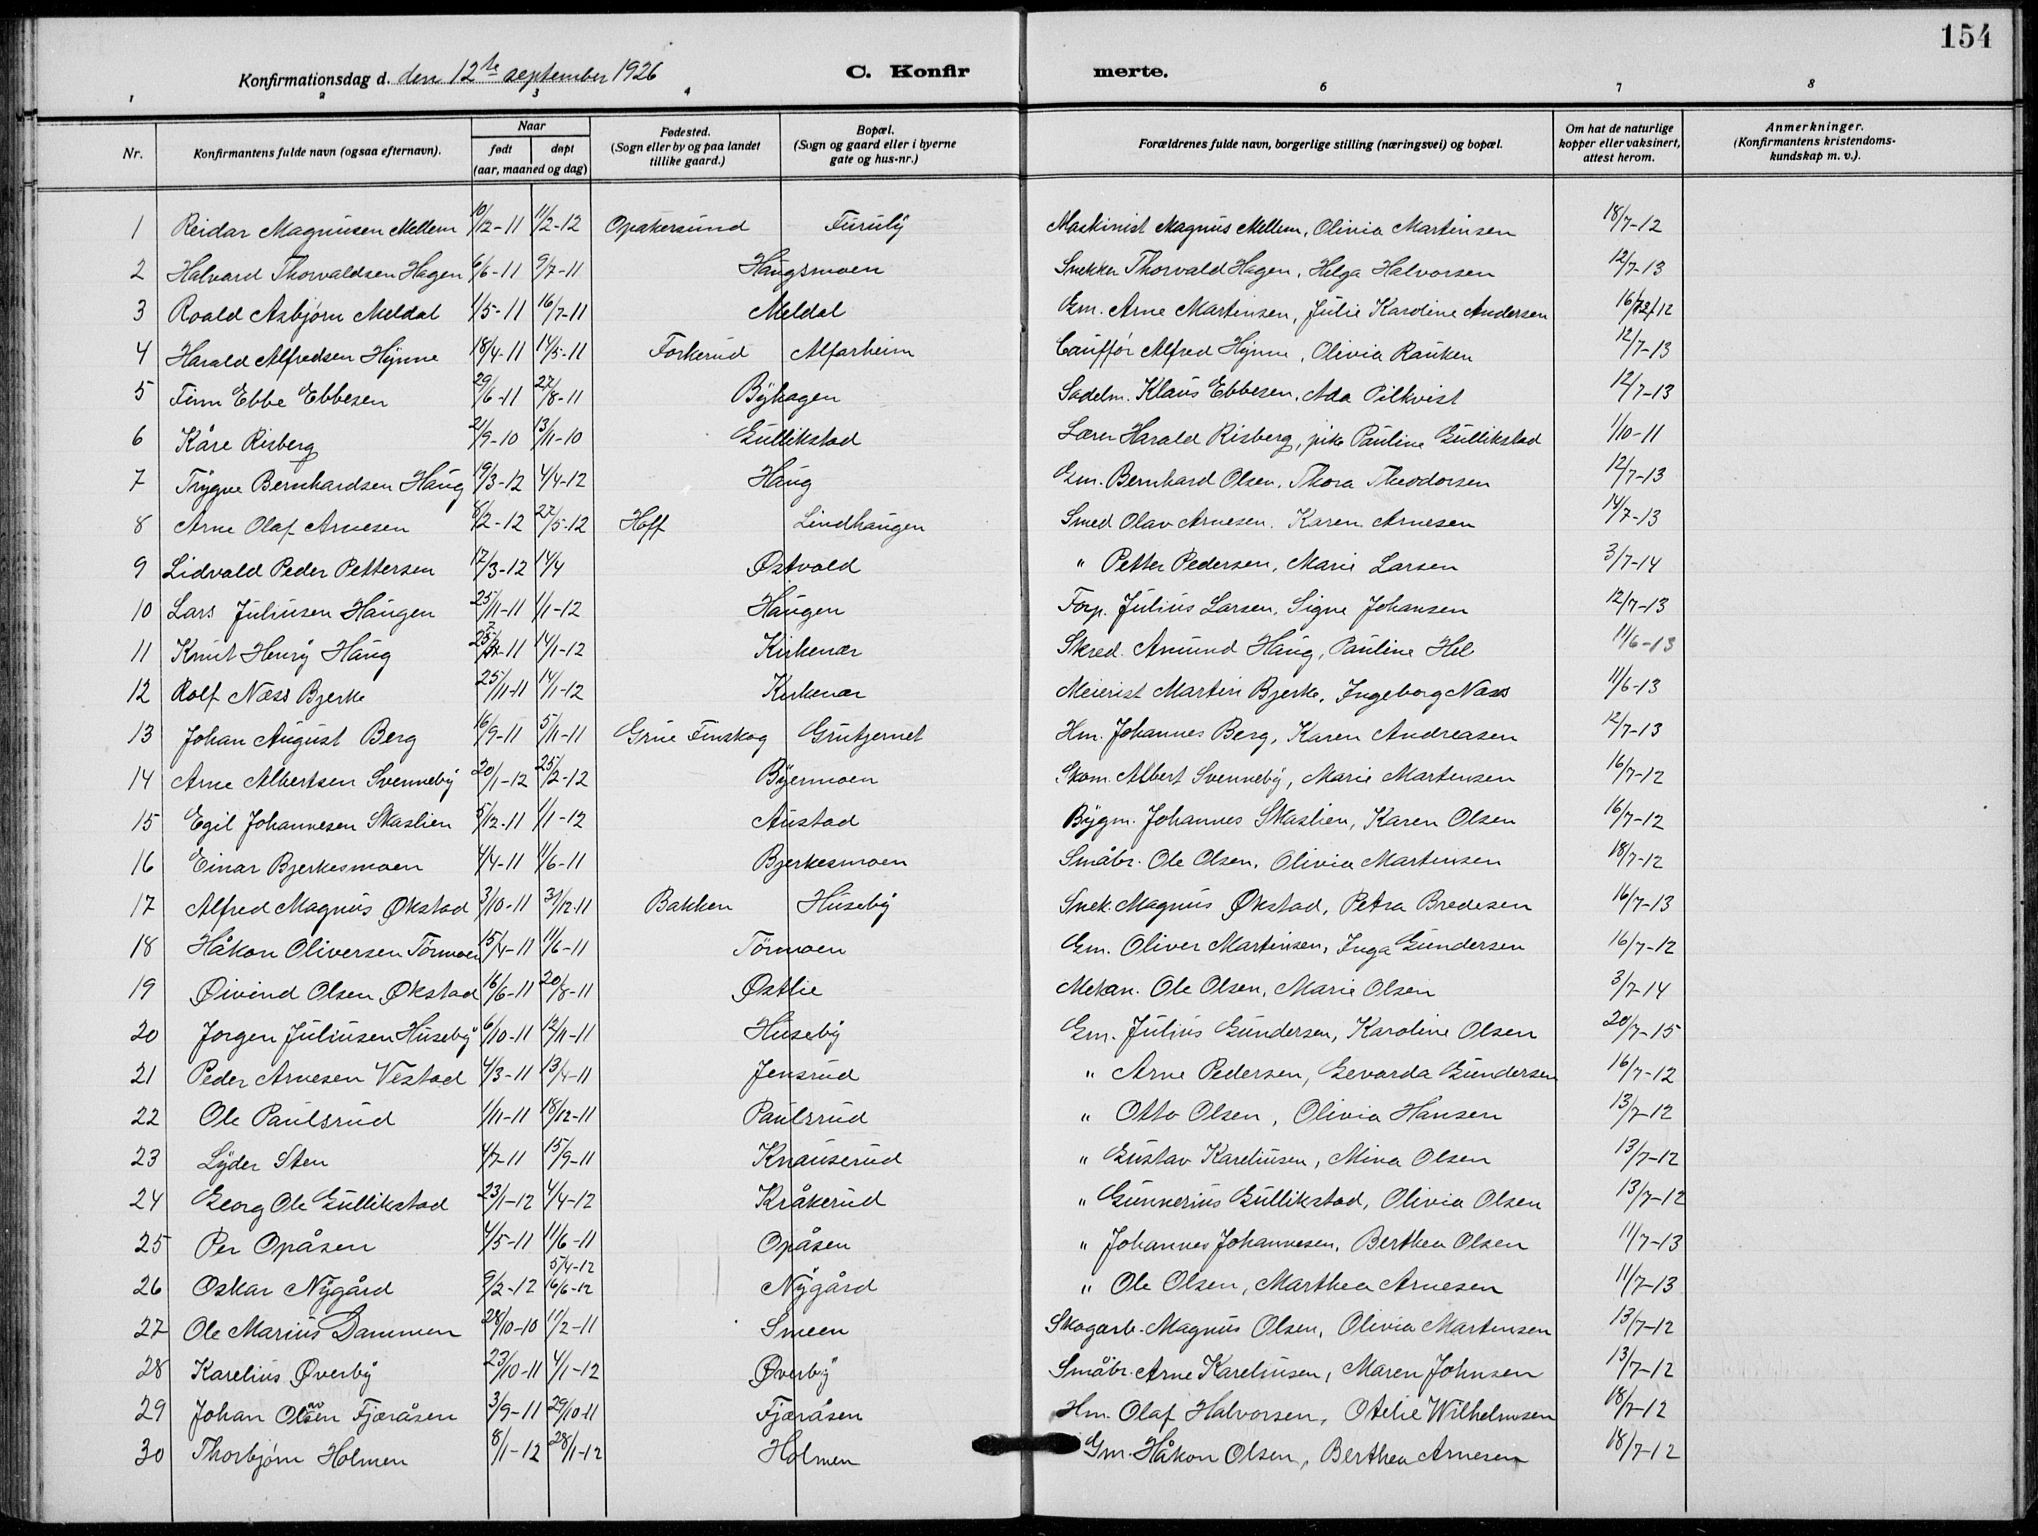 154
Konfirmationsdag d. den 12te september 1926 C. Konfir merte.
1 2 3 4 6 7 8
Nr. Konfirmantens fulde navn (ogsaa efternavn). Naar født døpt (aar, maaned og dag) Fødested. (Sogn eller by og paa landet tillike gaard.) Bopæl. (Sogn og gaard eller i byerne gate og hus-nr.) Forældrenes fulde navn, borgerlige stilling (næringsvei) og bopæl. Om hat de naturlige kopper eller vaksinert, attest herom. Anmerkninger. (Konfirmantens kristendoms-kundskap m. v.).
1 Reidar Magnusen Mellem 10/12-11 11/2-12 Opakersund Furuly Maskinist Magnus Mellem, Olivia Martinsen 18/7-12
2 Halvard Thorvaldsen Hagen 6/6-11 9/7-11 Haugsmoen Snekker Thorvald Hagen, Helga Halvorsen 12/7-13
3 Roald Asbjørn Meldal 1/5-11 16/7-11 Meldal Gm. Arne Martinsen, Julie Karoline Andersen 16/7-12
4 Harald Alfredsen Hynne 18/4-11 14/5-11 Forkerud Alfarheim Cauffør Alfred Hynne, Olivia Rauken 12/7-13
5 Finn Ebbe Ebbesen 29/6-11 27/8-11 Byhagen Sadelm. Klaus Ebbesen, Ada Pilkvist 12/7-13
6 Kåre Risberg 21/9-10 13/11-10 Gullikstad Lærer Harald Risberg, pike Pauline Gullikstad 1/10-11
7 Trygve Bernhardsen Haug 19/3-12 4/4-12 Haug Gm. Bernhard Olsen, Thora Theodorsen 12/7-13
8 Arne Olaf Arnesen 8/2-12 27/5-12 Hoff Lindhaugen Smed Olav Arnesen, Karen Arnesen 14/7-13
9 Lidvald Peder Pettersen 17/3-12 14/4 Østvold " Petter Pedersen, Marie Larsen 3/7-14
10 Lars Juliusen Haugen 25/11-11 1/1-12 Haugen Forp. Julius Larsen, Signe Johansen 12/7-13
11 Knut Henry Haug -11 14/1-12 Kirkenær Skred. Amund Haug, Pauline Hel 11/6-13
12 Rolf Næss Bjerke 25/11-11 14/1-12 Kirkenær Meierist Martin Bjerke, Ingeborg Næss 11/6-13
13 Johan August Berg 16/9-11 5/11-11 Grue Finskog Grutjernet Hm. Johannes Berg, Karen Andreasen 12/7-13
14 Arne Albertsen Svenneby 20/1-12 25/2-12 Byermoen Skom. Albert Svenneby, Marie Martinsen 16/7-12
15 Egil Johannesen Skaslien 5/12-11 1/1-12 Austad Bygm. Johannes Skaslien, Karen Olsen 16/7-12
16 Einar Bjerkesmoen 4/4-11 11/6-11 Bjerkesmoen Småbr. Ole Olsen, Olivia Martinsen 18/7-12
17 Alfred Magnus Økstad 3/10-11 31/12-11 Bakken Huseby Snek. Magnus Økstad, Petra Bredesen 16/7-13
18 Håkon Oliversen Törmoen 15/4-11 11/6-11 Törmoen Gm. Oliver Martinsen, Inga Gundersen 16/7-12
19 Øivind Olsen Økstad 16/6-11 20/8-11 Østlie Mekan. Ole Olsen, Marie Olsen 3/7-14
20 Jørgen Juliusen Huseby 6/10-11 12/11-11 Huseby Gm. Julius Gundersen, Karoline Olsen 20/7-15
21 Peder Arnesen Vestad 4/3-11 13/4-11 Jensrud " Arne Pedersen, Gevarda Gundersen 16/7-12
22 Ole Paulsrud 1/11-11 18/12-11 Paulsrud " Otto Olsen, Olivia Hansen 13/7-12
23 Lyder Sten 4/7-11 15/9-11 Knauserud " Gustav Kareliusen, Mina Olsen 13/7-12
24 Georg Ole Gullikstad 23/1-12 4/4-12 Kråkerud " Gunnerius Gullikstad, Olivia Olsen 13/7-12
25 Per Opåsen 4/5-11 11/6-11 Opåsen " Johannes Johannesen, Berthea Olsen 11/7-13
5/4-12
26 Oskar Nygård 9/2-12 16/6-12 Nygård " Ole Olsen, Marthea Arnesen 11/7-13
27 Ole Marius Dammen 28/10-10 11/2-11 Smeen Skogarb. Magnus Olsen, Olivia Martinsen 13/7-12
28 Karelius Øverby 23/10-11 4/1-12 Øverby Småbr. Arne Kareliusen, Maren Johnsen 13/7-12
29 Johan Olsen Fjæråsen 3/9-11 29/10-11 Fjæråsen Hm. Olaf Halvorsen, Otelie Wilhelmsen 18/7-12
30 Thorbjørn Holmen 8/1-12 28/1-12 Holmen Gm. Håkon Olsen, Berthea Arnesen 18/7-12